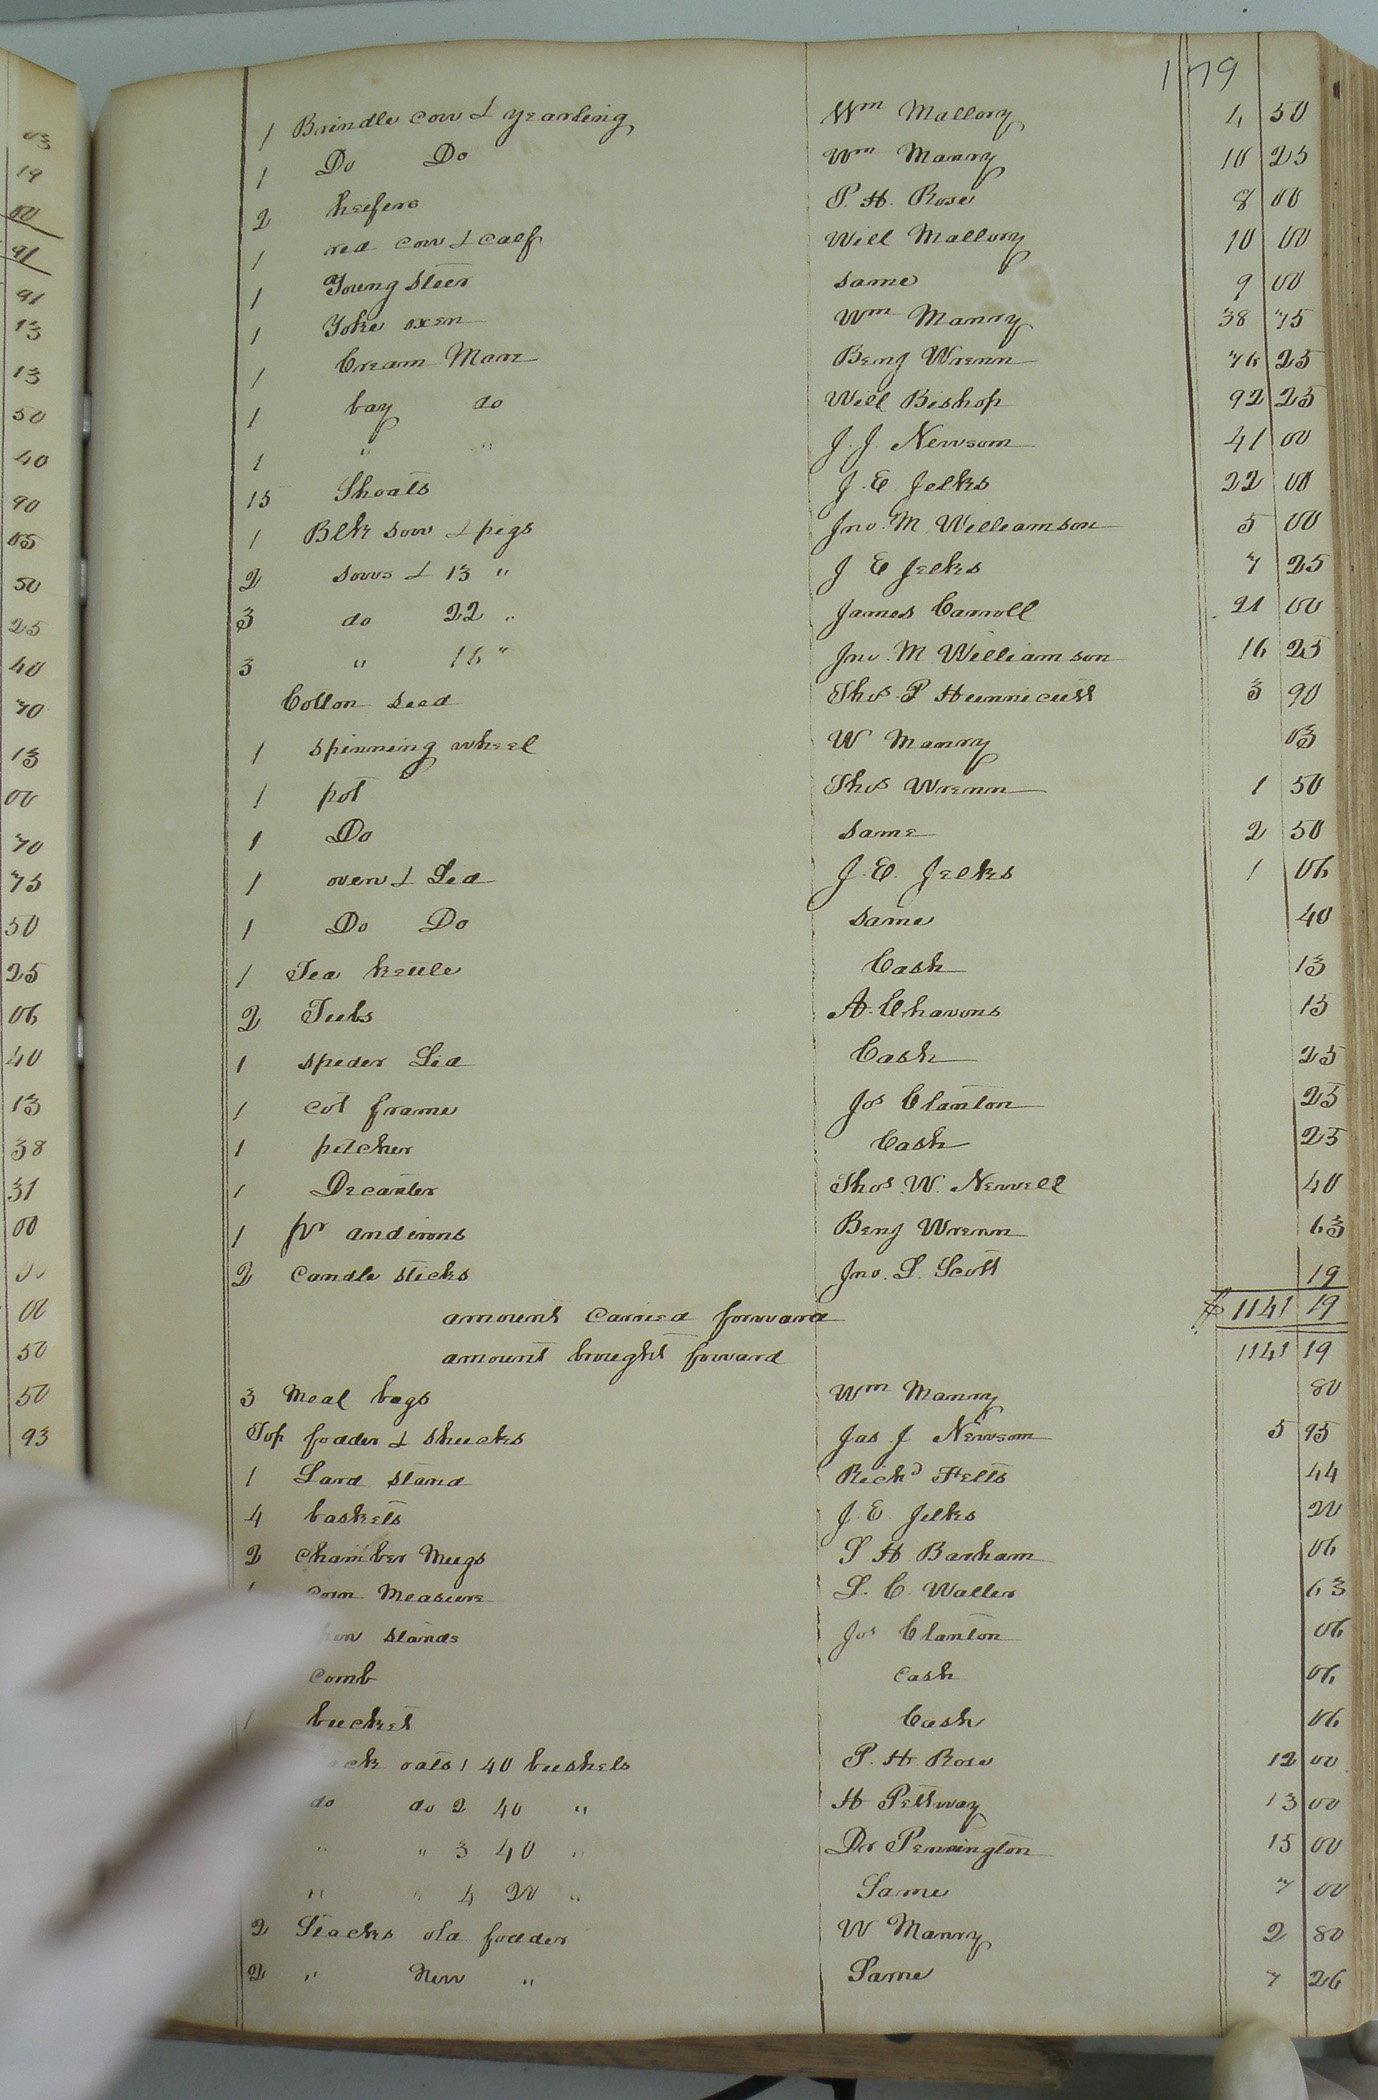 179
1 Brindle cow & yearling Wm Mallory 4 50
1 Do Do Wm Manry 10 25
2 heifers P. H. Rose 8 00
1 red cow & calf Will Mallory 10 00
1 Young steer same 9 00
1 Yoke oxen Wm Manry 38 75
1 Cream Mare Benj Wrenn 76 25
1 bay do Will Bishop 92 25
1 " " J. J. Newsom 41 00
15 Shoats J. E Jelks 22 00
1 Blk sow & pigs Jno. M. Williamson 5 00
2 sows & 13 " J E Jelks 7 25
3 do 22 " James Carroll 21 00
3 " 16 " Jno. M. Williamson 16 25
Cotton seed Thos. P Hunnicutt 3 90
1 spinning wheel W Manry 03
1 pot Thos Wrenn 1 50
1 Do same 2 50
1 oven & Lid J. E. Jelks 1 06
1 Do Do same 40
1 Tea kettle Cash 13
2 Tubs A. Chavons 15
1 speder Lid Cash 25
1 cot frame Jos Clanton 25
1 pitcher Cash 25
1 Decanter Thos. W. Newell 40
1 pr andirons Benj Wrenn 63
2 candle sticks Jno. L. Scott 19
amount carried forward $ 1141 19
amount brought forward 1141 19
3 Meal bags Wm Manry 80
Top fodder & shucks Jas J Newsom 5 95
1 Lard stand Richd Felts 44
4 baskets J. E. Jelks 20
2 chamber Mugs S H Barham 06
corn Measure L. C. Waller 63
stands Jos Clanton 06
comb cash 06
1 bucket Cash 06
oats 1 40 bushels P. H Rose 12 00
do do 2 40 " H Pettway 13 00
" " 3 40 " Dr Pennington 15 00
" " 4 20 " Same 7 00
2 Stacks old fodder W Manry 2 80
2 " New " Same 7 26
03
19
00
91
91
13
13
50
40
90
05
50
25
40
70
13
00
70
75
50
25
06
40
13
38
31
00
00
50
50
93